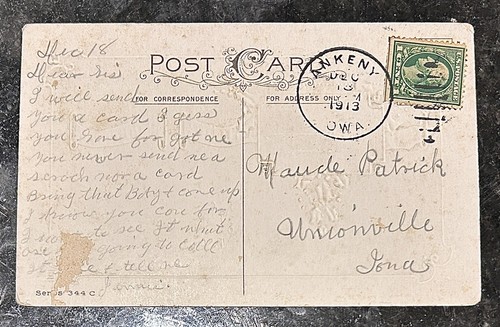 Dec 18
POST CARD
Dear Sis
I will send
FOR CORRESPONDENCE
FOR ADDRESS ONLY
You a card I guess
you have for got me
You never send me a
scrach nor a card
Bring that Boty & come up
I know you can for
I want to see It what
are going to call
It & tell me
Jennie.
Series 344 C
ANKENY
DEC
18
M
1913
IOWA.
Maude Patrick
Unionville
Iowa